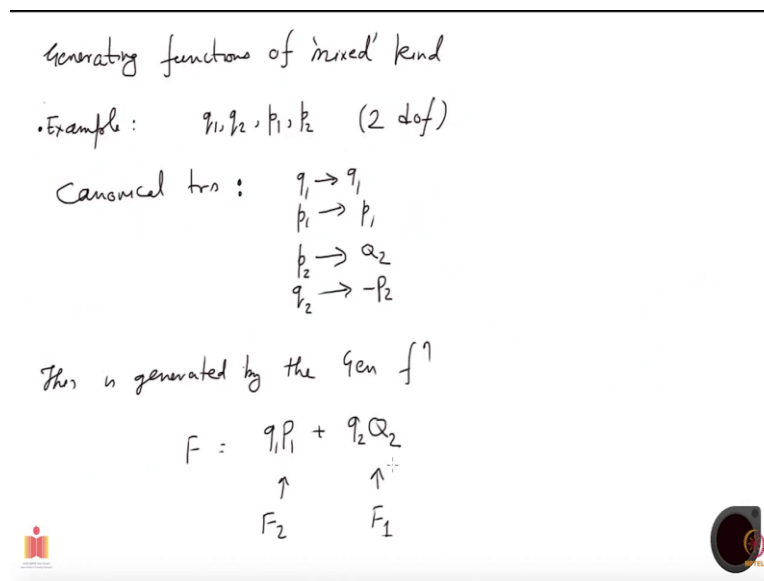 Generating functions of 'mixed' kind
• Example : q₁, q₂, p₁, p₂ (2 dof)
Canonical trs : q₁ → q₁
p₁ → p₁
p₂ → Q₂
q₂ → -P₂
This is generated by the Gen fⁿ
F = q₁P₁ + q₂Q₂
↑ ↑
F₂ F₁
NPTEL